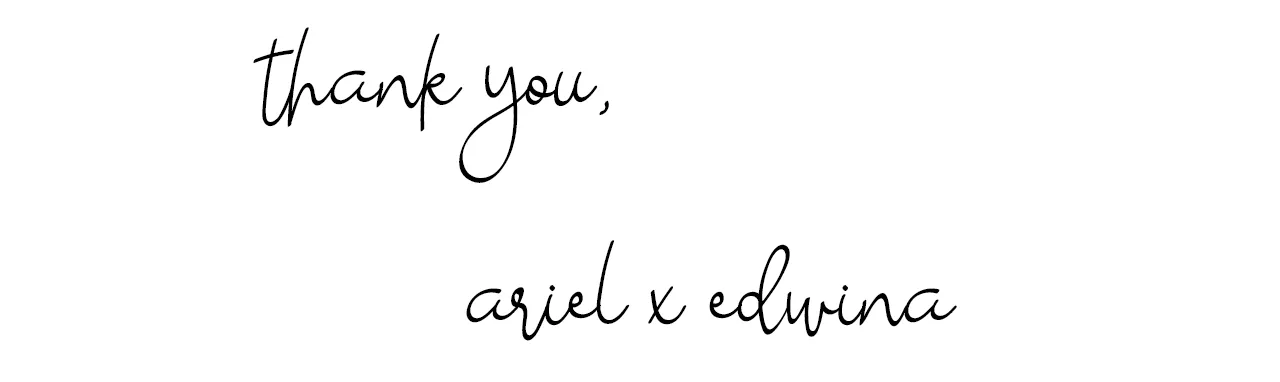 thank you,
ariel x edwina